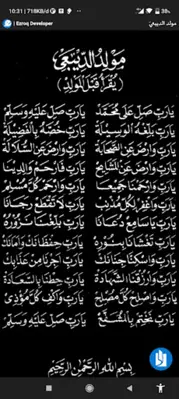 10:31 | 718KB/d
مولد الديبعي | Ezroq Developer
مَوْلِدُ الدِّيْبَعِي
(يُقْرَأُ قَبْلَ المَوْلِدِ)
يَارَبِّ صَلِّ عَلَى مُحَمَّدْ يَارَبِّ صَلِّ عَلَيْهِ وَسَلِّمْ
يَارَبِّ بَلِّغْهُ الْوَسِيْلَةْ يَارَبِّ خُصَّهُ بِالْفَضِيْلَةْ
يَارَبِّ وَارْضَ عَنِ الصَّحَابَةْ يَارَبِّ وَارْضَ عَنِ السُّلَالَةْ
يَارَبِّ وَارْضَ عَنِ الْمَشَايِخْ يَارَبِّ فَارْحَمْ وَالِدِيْنَا
يَارَبِّ وَارْحَمْنَا جَمِيْعًا يَارَبِّ وَارْحَمْ كُلَّ مُسْلِمْ
يَارَبِّ وَاغْفِرْ لِكُلِّ مُذْنِبْ يَارَبِّ لَا تَقْطَعْ رَجَانَا
يَارَبِّ يَا سَامِعْ دُعَانَا يَارَبِّ بَلِّغْنَا نَزُوْرُهْ
يَارَبِّ تَغْشَانَا بِنُوْرِهْ يَارَبِّ حِفْظَانَكْ وَأَمَانَكْ
يَارَبِّ وَاسْكِنَّا جِنَانَكْ يَارَبِّ أَجِرْنَا مِنْ عَذَابِكْ
يَارَبِّ وَارْزُقْنَا الشَّهَادَةْ يَارَبِّ حِطْنَا بِالسَّعَادَةْ
يَارَبِّ وَاصْلِحْ كُلَّ مُصْلِحْ يَارَبِّ وَاكْفِ كُلَّ مُؤْذِيْ
يَارَبِّ نَخْتِمْ بِالْمُشَفَّعْ يَارَبِّ صَلِّ عَلَيْهِ وَسَلِّمْ
بِسْمِ اللهِ الرَّحْمٰنِ الرَّحِيْمِ